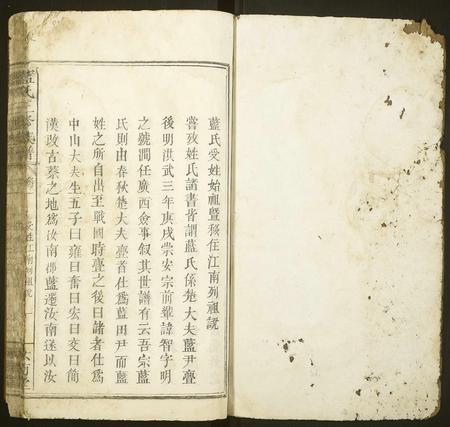 藍氏受姓始祖暨移住江南列祖說
嘗攷姓氏諸書皆謂藍氏係楚大夫藍尹亹
後明洪武三年庚戌崇安宗前輩諱智字明
之號澗任廣西僉事叙其世譜有云吾宗藍
氏則由春秋楚大夫亹者仕為藍田尹而藍
姓之所自出至戰國時亹之後曰諸者仕為
中山大夫生五子曰雍曰奮曰宏曰文曰簡
漢改古蔡之地爲汝南郡藍遷汝南遂以汝
藍氏三修族譜
受姓江南列祖說 一